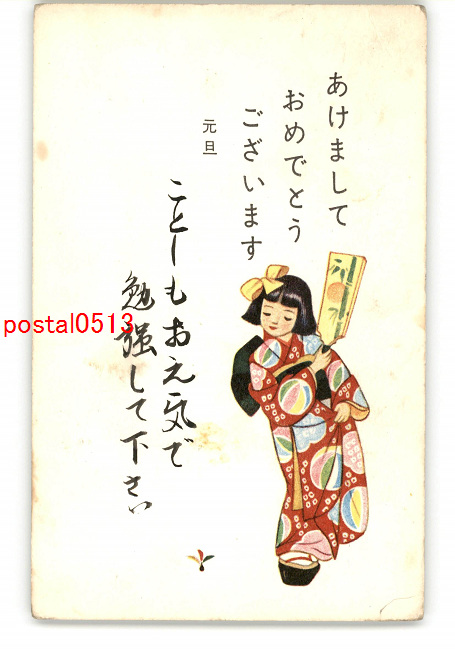 あけまして
おめでとう
ございます
元旦
ことしもお元気で
勉强して下さい
postal0513